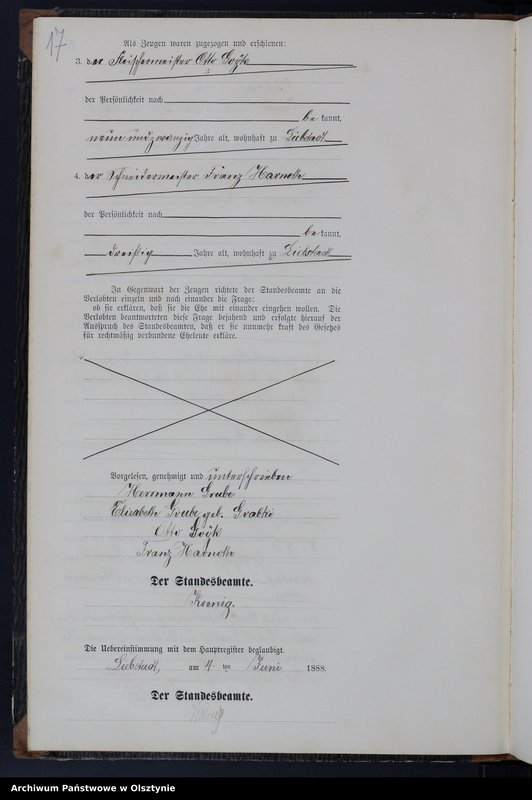 17
Als Zeugen waren zugezogen und erschienen:
3. der Fleischermeister Otto
der Persönlichkeit nach
bekannt,
neun und zwanzig Jahre alt, wohnhaft zu Liebstadt
4. der Schneidermeister Franz Harnoth
der Persönlichkeit nach
bekannt,
dreißig Jahre alt, wohnhaft zu Liebstadt
In Gegenwart der Zeugen richtete der Standesbeamte an die
Verlobten einzeln und nach einander die Frage:
ob sie erklären, daß sie die Ehe mit einander eingehen wollen. Die
Verlobten beantworteten diese Frage bejahend und erfolgte hierauf der
Ausspruch des Standesbeamten, daß er sie nunmehr kraft des Gesetzes
für rechtmäßig verbundene Eheleute erkläre.
Vorgelesen, genehmigt und unterschrieben
Herrmann Grube
Elisabeth Grube, geb.
Otto
Franz Harnoth
Der Standesbeamte.
Koenig.
Die Uebereinstimmung mit dem Hauptregister beglaubigt.
Liebstadt, am 4 ten Juni 1888.
Der Standesbeamte.
Koenig
Archiwum Państwowe w Olsztynie